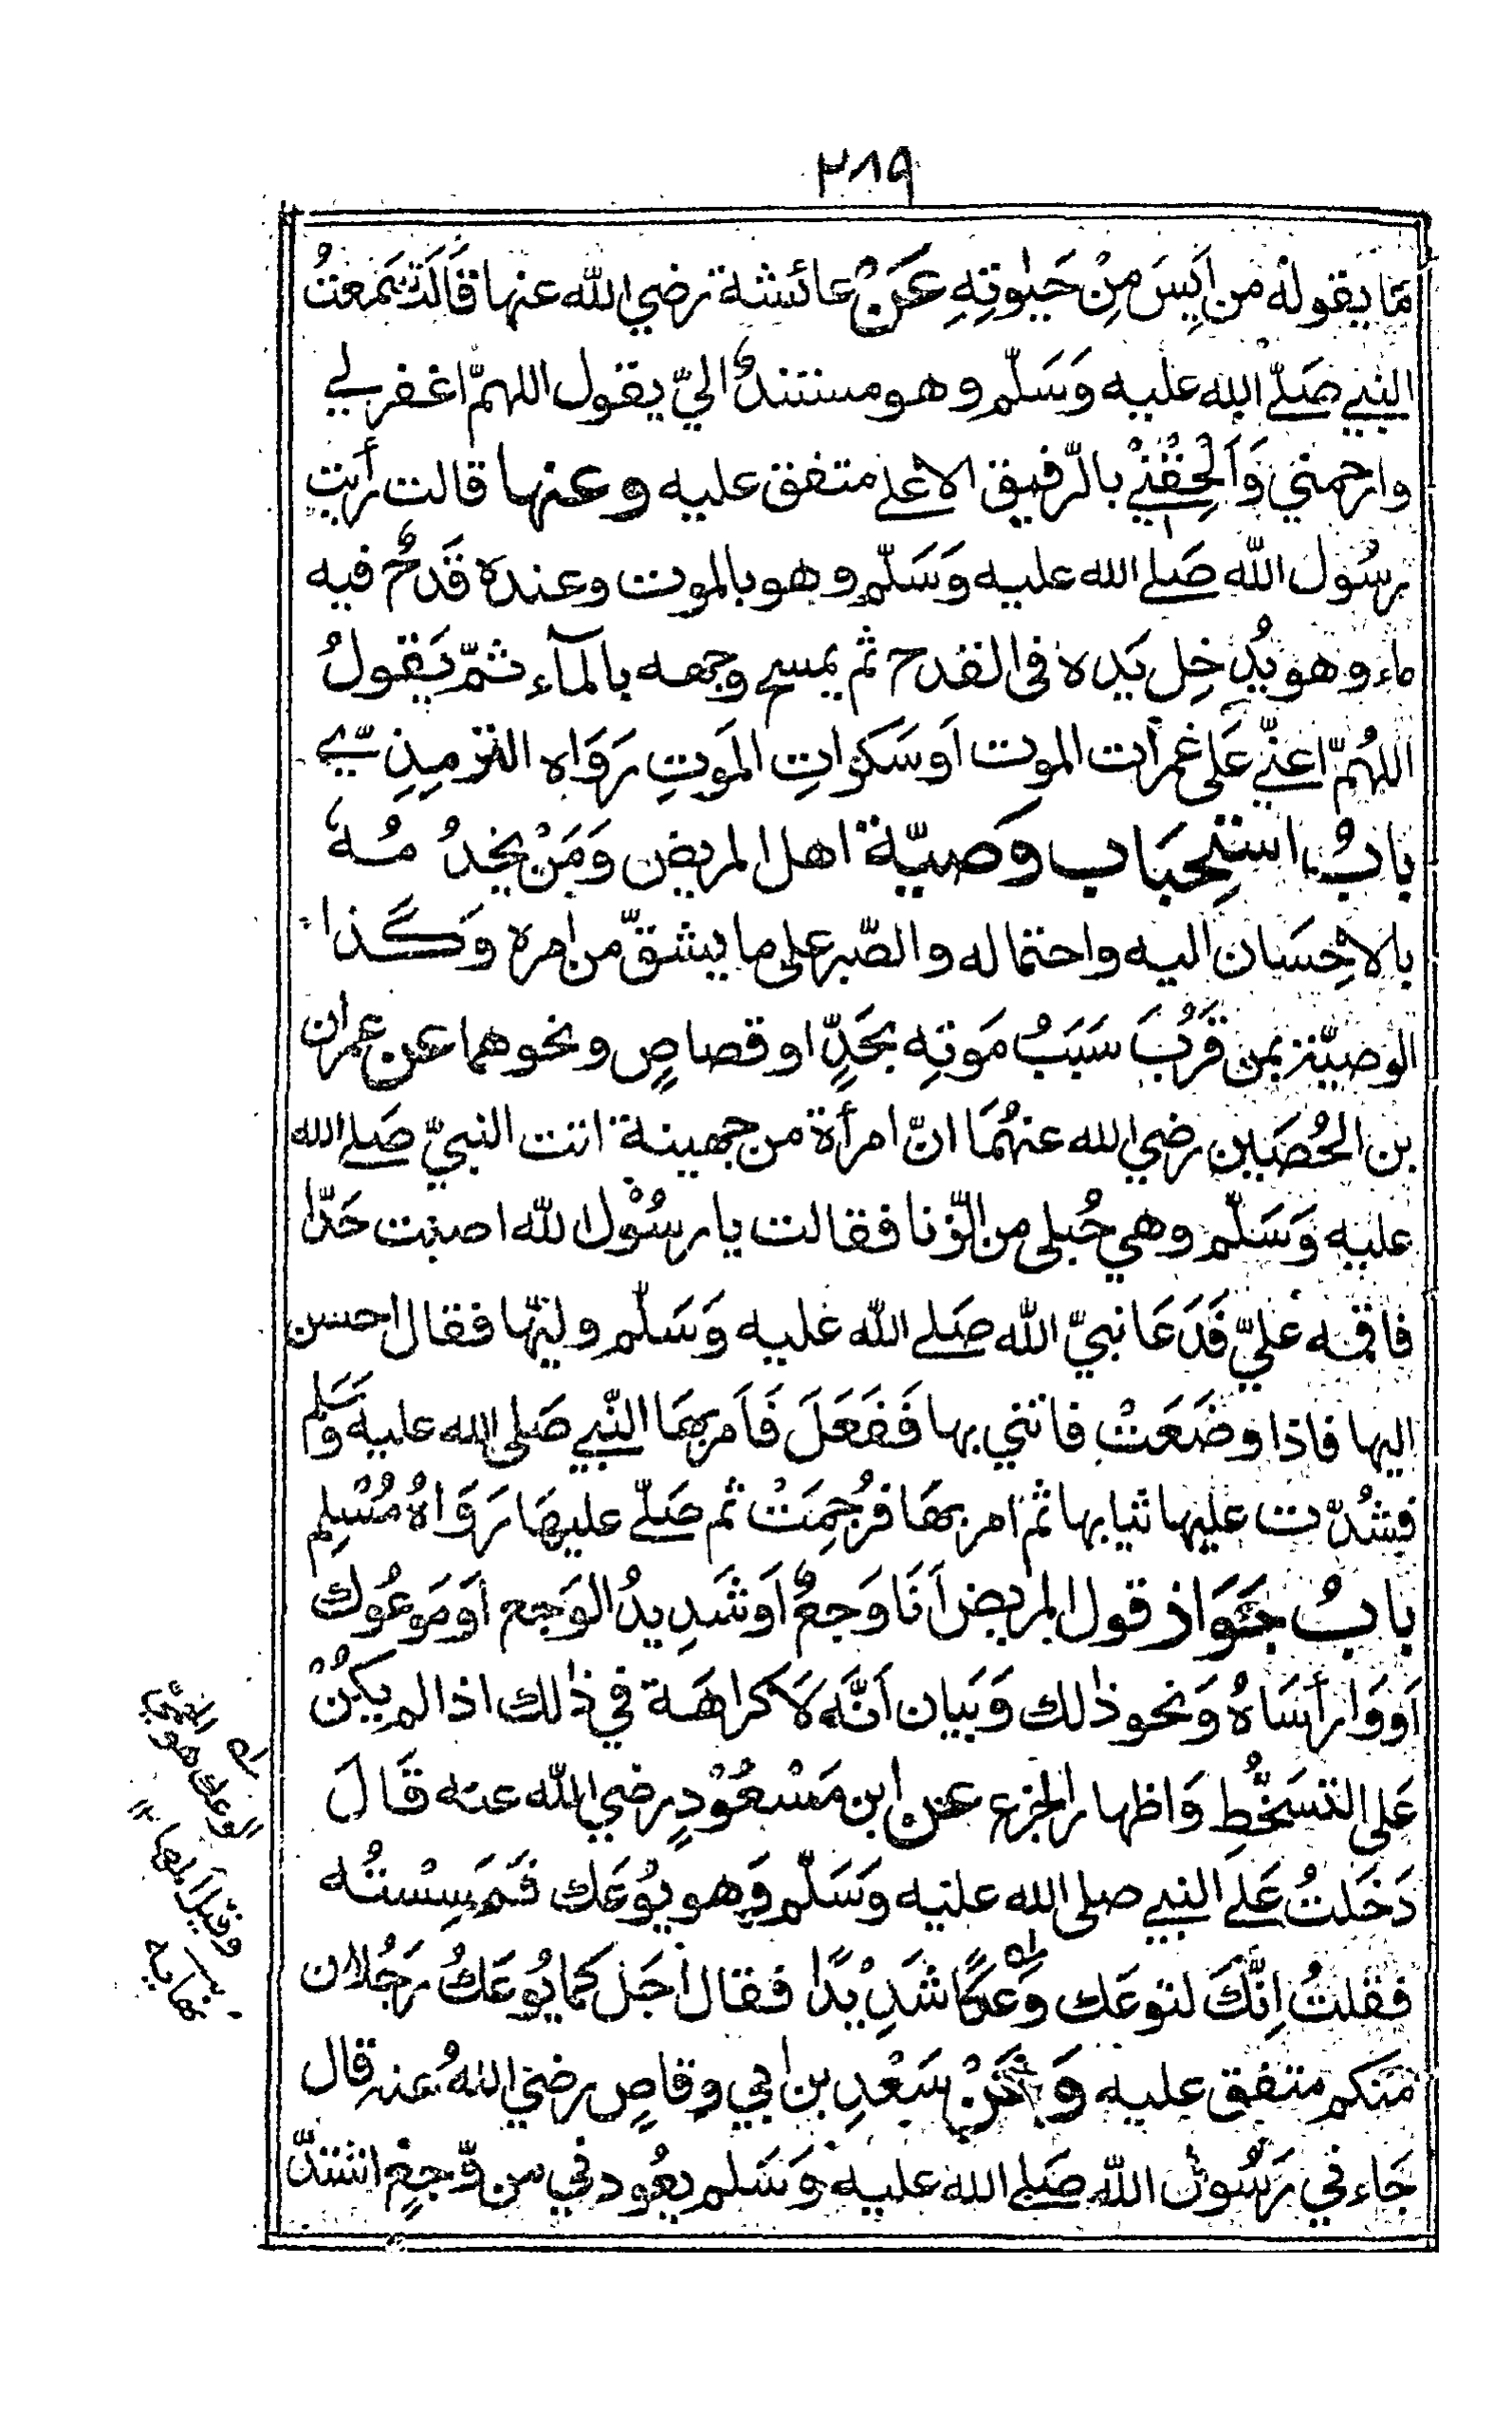 ٢٨٩
مَا يقولهُ من اَيِسَ مِنْ حَيٰوتِهِ عَنْ عائشة رضي الله عنها قَالَتْ سَمعتُ
النبي صَلّے الله عليه وَسَلّم وهو مستندٌ اليّ يقول اللهمّ اغفر لي
وارحمني وَاَلْحِقْنِي بالرّفيق الاعْلے متفق عليه وعنها قالت رأيت
رسُول الله صَلے الله عليه وَسَلّم وهو بالموت وعنده قَدحٌ فيه
ماء وهو يُدخِل يَده فى القدح ثم يمسح وجهه بالمآء ثمّ يَقولُ
اللهُمّ اعنّي عَلى غمرات الموت اَو سَكراتِ المَوتِ رَوَاه الترمِذِيّ
بابُ استِحبَاب وَصيّة اهل المريض وَمَنْ يخدُمُهٗ
بالاِحْسَان اليه واحتماله والصّبر على ما يشقّ من امره وَكَذا
الوصيّة بمن قَرُبَ سَبَبُ مَوتِه بحَدٍّ او قصاصٍ ونحوهما عن عمران
بن الحُصَين رضي الله عنهُمَا انّ امرأة من جهينة اتت النبيّ صَلے الله
عليه وَسَلّم وهي حُبلى من الزّنا فقالت يا رسُوْل الله اصبت حَدّا
فاقمه عليّ فَدَعَا نبيّ الله صَلے الله عليه وَسَلّم وليّها فقال احسن
اليها فاذا وضَعَتْ فاتني بها فَفَعَلَ فَاَمر بهَا النّبي صَلى الله عليه وَسَلم
فشُدّت عليها ثيابها ثم امر بهَا فرُجِمَتْ ثم صَلّے عليهَا رَوَاهُ مُسْلِم
بابُ جَوَاز قول المريض اَنَا وَجعٌ اَو شَدِيدُ الوَجع اَو مَوعُوك
اَو وَا رأسَاهُ وَنحو ذٰلك وَبَيان اَنّه لَا كراهَة في ذٰلك اذا لم يكُنْ
عَلى التسَخُّطِ وَاظهار الجزع عَن ابن مَسْعُوْدٍ رضي الله عنه قَالَ
دَخَلتُ عَلے النبي صلى الله عليه وَسَلّم وَهو يُوعَك فَمَسِسْتُه
فقلتُ اِنَّكَ لتوعَك وَعكًا شَدِيْدًا فقال اَجَل كما يُوعَكُ رَجُلان
منكم متفق عليه وَعَنْ سَعْدِ بن ابي وقاصٍ رضي اللهُ عنه قال
جَاءني رَسُول الله صَلے الله عليه وَسَلم يعُودني من وَّجعٍ اشتدّ
الوعك هو الحمّى
وقيل المها
نهاية